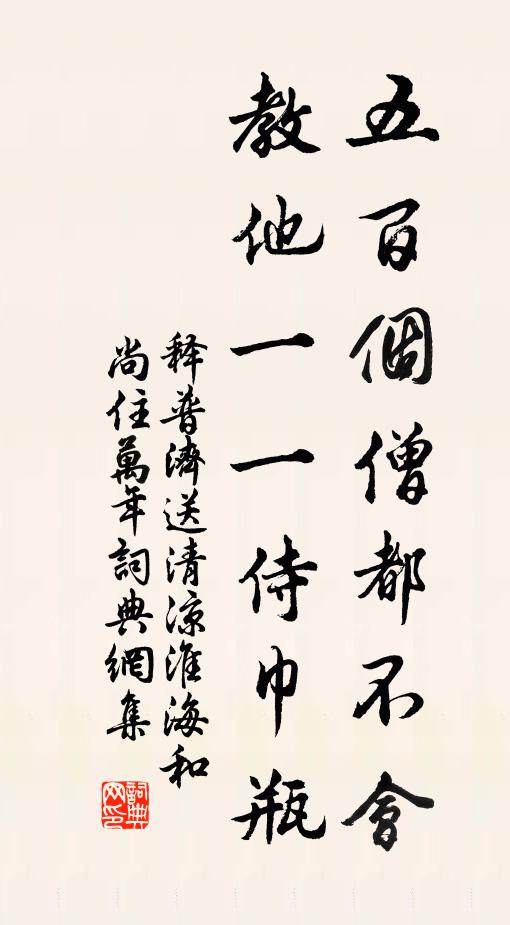 五百個僧都不會
教他一一侍巾瓶
释普濟送清凉淮海和
尚住萬年詞典網集
詞典网印